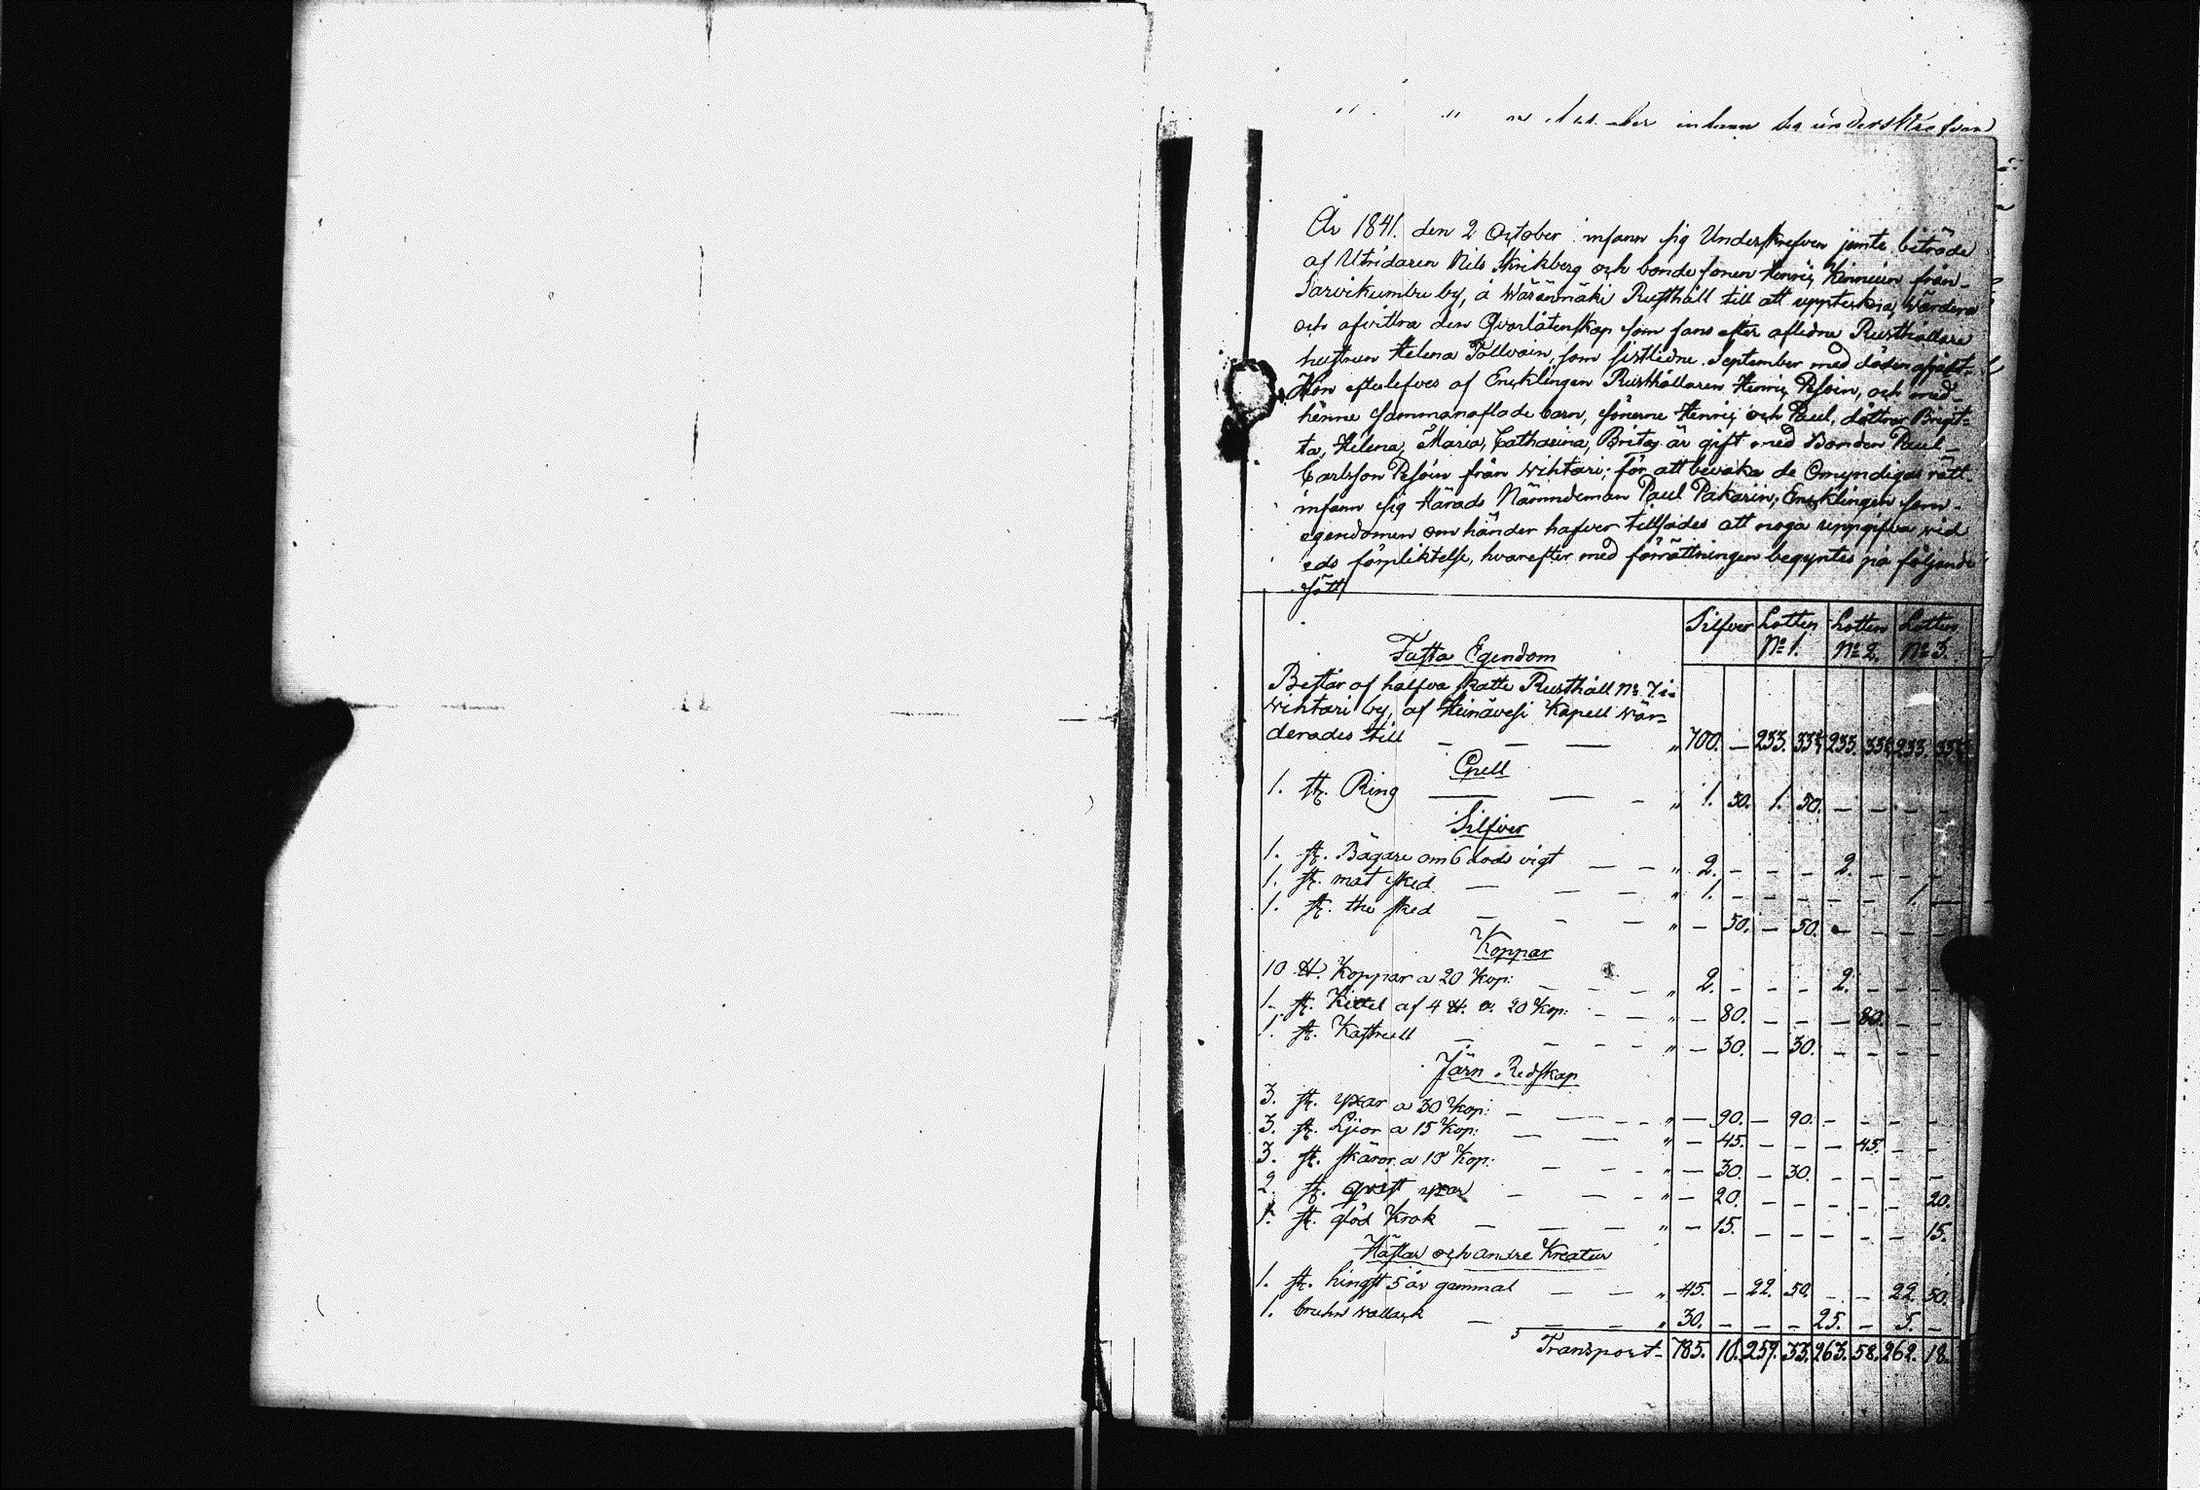 infann sig underskrefven
År 1841. den 2 October infann sig Underskrefven jemte biträde
af Utridaren Nils Strikberg och bonde sonen Henric Kinnuin från
Sarvikumbu by, å Wäränmäki Rusthåll till att uppteckna, Wärdera
och afvittra den Qvarlåtenskap som fans efter aflidne Rusthållare
hustrun Helena Tollvain, som sistledne September med döden afgått.
Hon efterlefves af Encklingen Rusthållaren Henric Pesoin, och med
henne sammanaflade barn, sönerne Henric och Paul, döttrar Brigit=
ta, Helena, Maria, Catharina, Brita är gift med Bonden Paul
Carlsson Pesoin från Wihtari; för att bevaka de Omyndigas rätt
infann sig Härads Nämndeman Paul Pakarin; Encklingen som
egendomen om händer hafver tillsades att noga uppgifva vid
eds förpliktelse, hvarefter med förrättningen begyntes på följande
sätt
Silfver Lotten Lotten Lotten
N:o 1. N:o 2. N:o 3.
Fasta Egendom
Består af halfva skatte Rusthåll N:o 7 i
Wihtari by, af Heinävesi Kapell vär=
derades till — — — „ 700. — 233. 33⅓ 233. 33⅓ 233. 33⅓
Gull
1. st. Ring — — - „ 1. 50. 1. 50. — — — —
Silfver
1. st. Bägare om 6 lods vigt — - „ 2. - - - 2. - - -
1. st. mat sked — — - „ 1. - - - - - 1. —
1. st. the sked - - — „ — 50. — 50. - - - -
Koppar
10 ℔. Koppar a 20 Kop: - - - „ 2. - - - 2. - - -
1. st. Kittel af 4 ℔. a. 20 Kop: - - „ — 80. - - — 80. - -
1. st. Kastrull - - - - „ — 30. — 30. - - - -
Järn Redskap
3. st. yxar a 30 Kop: - — - - „ — 90. — 90. - - - -
3. st. Ljior a 15 Kop: — — „ — 45. - - — 45. - -
3. st. skäror a 10 Kop: - - - „ — 30. — 30. - - - -
2. st. qvist yxar - - - „ — 20. - - - - - 20.
1. st. glöd Krok - — - „ — 15. - - - - - 15.
Hästar och andre Kreatur
1. st. hingst 5 år gammal — — „ 45. — 22. 50. - - 22. 50.
1. bruhn vallack — — - „ 30. - - - 25. - 5. -
Transport - 785. 10. 259. 33. 263. 58. 262. 18.